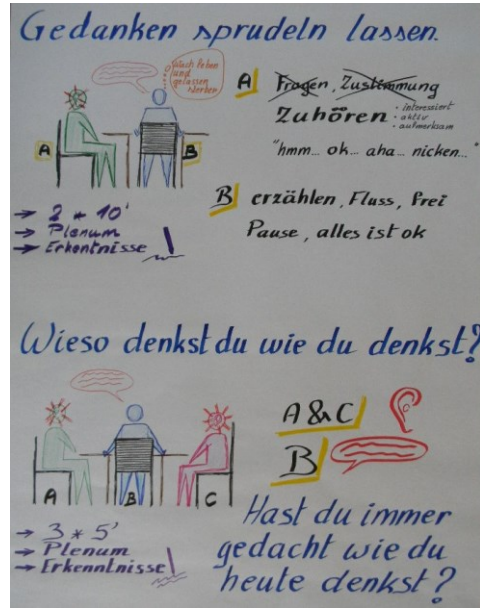 Gedanken sprudeln lassen.
Wach leben
und
gelassen
sterben
A Fragen, Zustimmung
Zuhören
• interessiert
• aktiv
• aufmerksam
"hmm... ok... aha... nicken..."
A
B
B erzählen, Fluss, frei
Pause, alles ist ok
→ 2 * 10'
→ Plenum
→ Erkentnisse!
Wieso denkst du wie du denkst?
A & C
B
A
B
C
→ 3 * 5'
→ Plenum
→ Erkenntnisse!
Hast du immer
gedacht wie du
heute denkst?